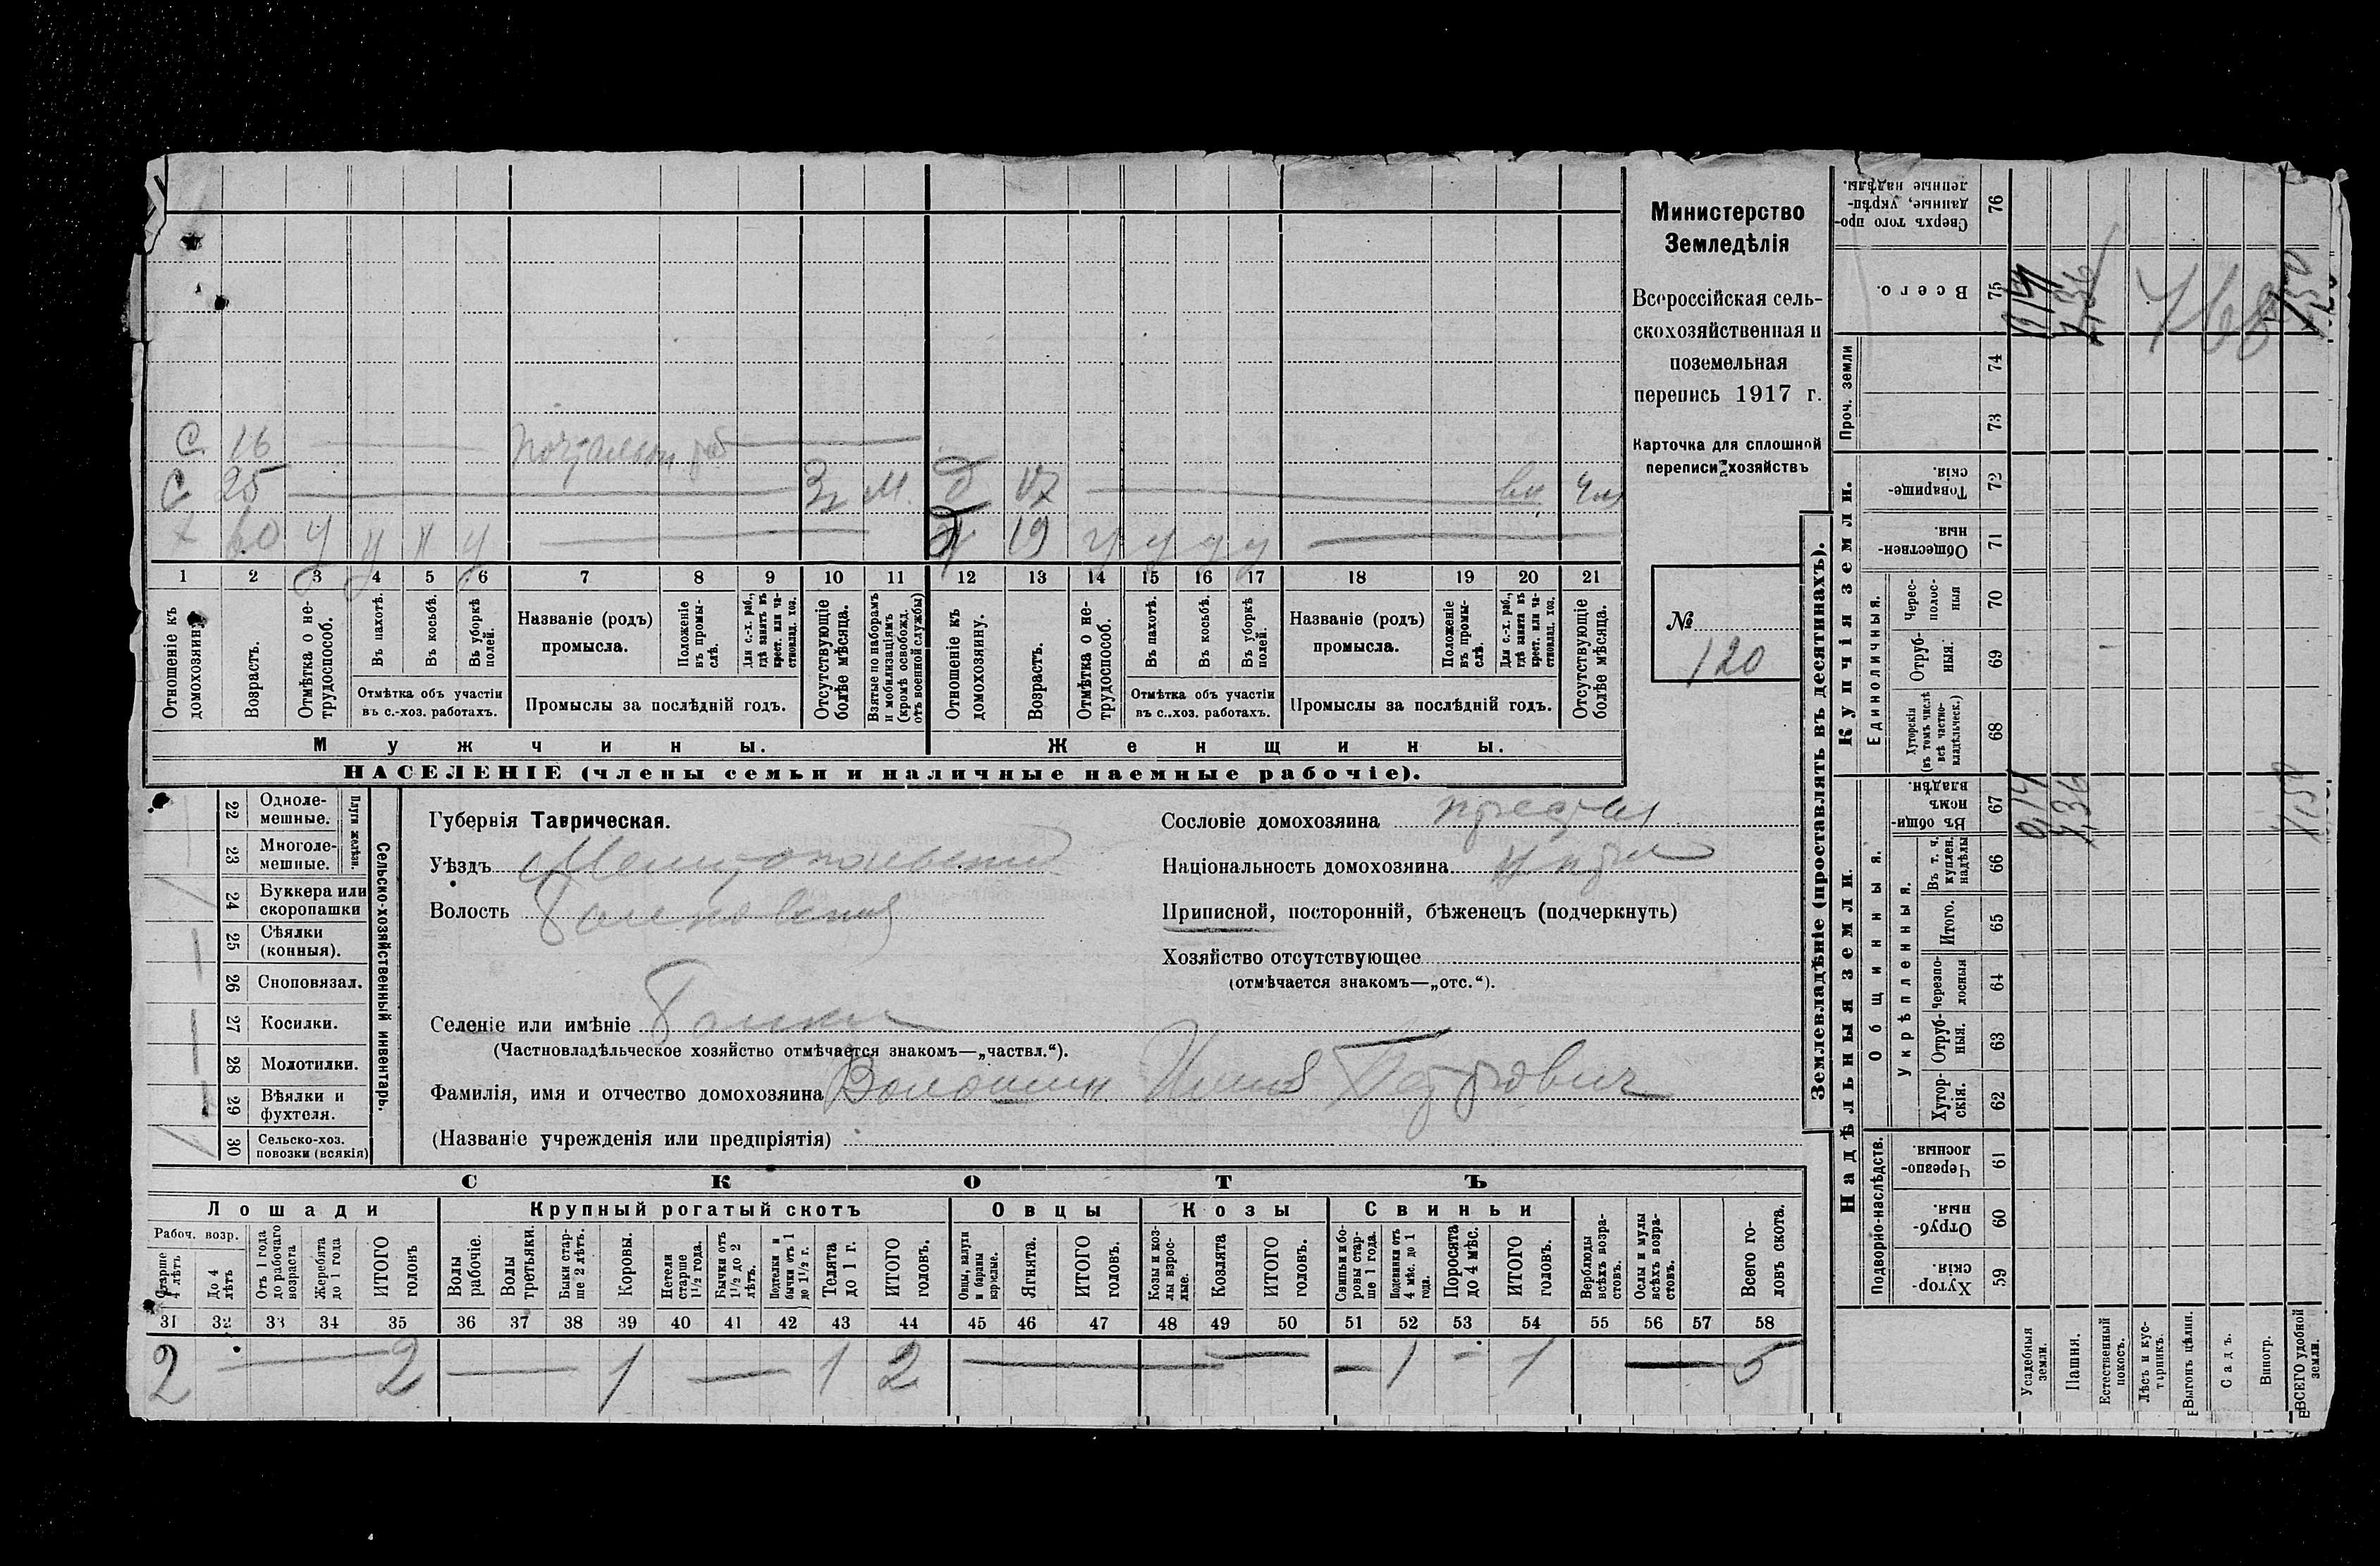 Министерство
Земледѣлія
Всероссійская сель-
скохозяйственная и
поземельная
перепись 1917 г.
Карточка для сплошной
переписи хозяйствъ
№
120
С 16
С 25
х 60 19
1 2 3 4 5 6 7 8 9 10 11 12 13 14 15 16 17 18 19 20 21
Отношеніе къ домохозяину.
Возрастъ.
Отмѣтка о не-трудоспособ.
Въ пахотѣ.
Въ косьбѣ.
Въ уборкѣ полей.
Отмѣтка объ участіи
въ с.-хоз. работахъ.
Названіе (родъ)
промысла.
Положеніе въ промы-слѣ.
Для с.-х. раб., гдѣ занятъ въ крест. или ча-стновлад. хоз.
Промыслы за послѣдній годъ.
Отсутствующіе болѣе мѣсяца.
Взятые по наборамъ и мобилизаціямъ (кромѣ освобожд. отъ военной службы)
Отношеніе къ домохозяину.
Возрастъ.
Отмѣтка о не-трудоспособ.
Въ пахотѣ.
Въ косьбѣ.
Въ уборкѣ полей.
Отмѣтка объ участіи
въ с.-хоз. работахъ.
Названіе (родъ)
промысла.
Положеніе въ промы-слѣ.
Для с.-х. раб., гдѣ занята въ крест. или ча-стновлад. хоз.
Промыслы за послѣдній годъ.
Отсутствующіе болѣе мѣсяца.
Мужчины.
Женщины.
НАСЕЛЕНІЕ (члены семьи и наличные наемные рабочіе).
Сельско-хозяйственный инвентарь.
Плуги желѣзн.
22 Одноле-мешные.
23 Многоле-мешные.
24 Буккера или скоропашки
25 Сѣялки (конныя).
26 Сноповязал.
27 Косилки.
28 Молотилки.
29 Вѣялки и фухтеля.
30 Сельско-хоз. повозки (всякія)
Губернія Таврическая.
Уѣздъ Мелитопольский
Волость
Селеніе или имѣніе
(Частновладѣльческое хозяйство отмѣчается знакомъ—„частвл.“).
Фамилія, имя и отчество домохозяина Волошин Петрович
(Названіе учрежденія или предпріятія)
Сословіе домохозяина
Національность домохозяина
Приписной, посторонній, бѣженецъ (подчеркнуть)
Хозяйство отсутствующее
(отмѣчается знакомъ—„отс.“).
СКОТЪ
Лошади
Крупный рогатый скотъ
Овцы
Козы
Свиньи
Рабоч. возр.
Старше 4 лѣтъ
До 4 лѣтъ
Отъ 1 года до рабочаго возраста
Жеребята до 1 года
ИТОГО головъ
Волы рабочіе.
Волы третьяки.
Быки стар-ше 2 лѣтъ.
Коровы.
Нетели старше 1½ года.
Бычки отъ 1½ до 2 лѣтъ.
Подтелки и бычки отъ 1 до 1½ г.
Телята до 1 г.
ИТОГО головъ.
Овцы, валухи и бараны взрослые.
Ягнята.
ИТОГО головъ.
Козы и коз-лы взрос-лые.
Козлята
ИТОГО головъ.
Свиньи и бо-ровы стар-ше 1 года.
Подсвинки отъ 4 мѣс. до 1 года.
Поросята до 4 мѣс.
ИТОГО головъ.
Верблюды всѣхъ возра-стовъ.
Ослы и мулы всѣхъ возра-стовъ.
Всего го-ловъ скота.
31 32 33 34 35 36 37 38 39 40 41 42 43 44 45 46 47 48 49 50 51 52 53 54 55 56 57 58
2 — 2 — 1 — 1 2 — — — 1 - 1 — 5
Землевладѣніе (проставлять въ десятинахъ).
Надѣльныя земли.
Купчія земли.
Проч. земли
Подворно-наслѣдств.
Общинныя.
Укрѣпленныя.
Единоличныя.
Хутор-скія. 59
Отруб-ныя. 60
Черезпо-лосныя 61
Хутор-скія. 62
Отруб-ныя. 63
Черезпо-лосныя 64
Итого. 65
Въ т. ч. куплен. надѣлы 66
Въ общи-номъ владѣн. 67
Хуторскія (въ томъ числѣ всѣ частно-владѣльческ.) 68
Отруб-ныя. 69
Черес-полос-ныя 70
Обществен-ныя 71
Товарище-скія. 72
73
74
Всего. 75
Сверхъ того про-данные, укрѣп-ленные надѣлы. 76
Усадебныя земли.
Пашня.
Естественный покосъ.
Лѣсъ и кус-тарникъ.
Выгонъ цѣлин.
Садъ.
Виногр.
ВСЕГО удобной земли.
0,14
7,36
768